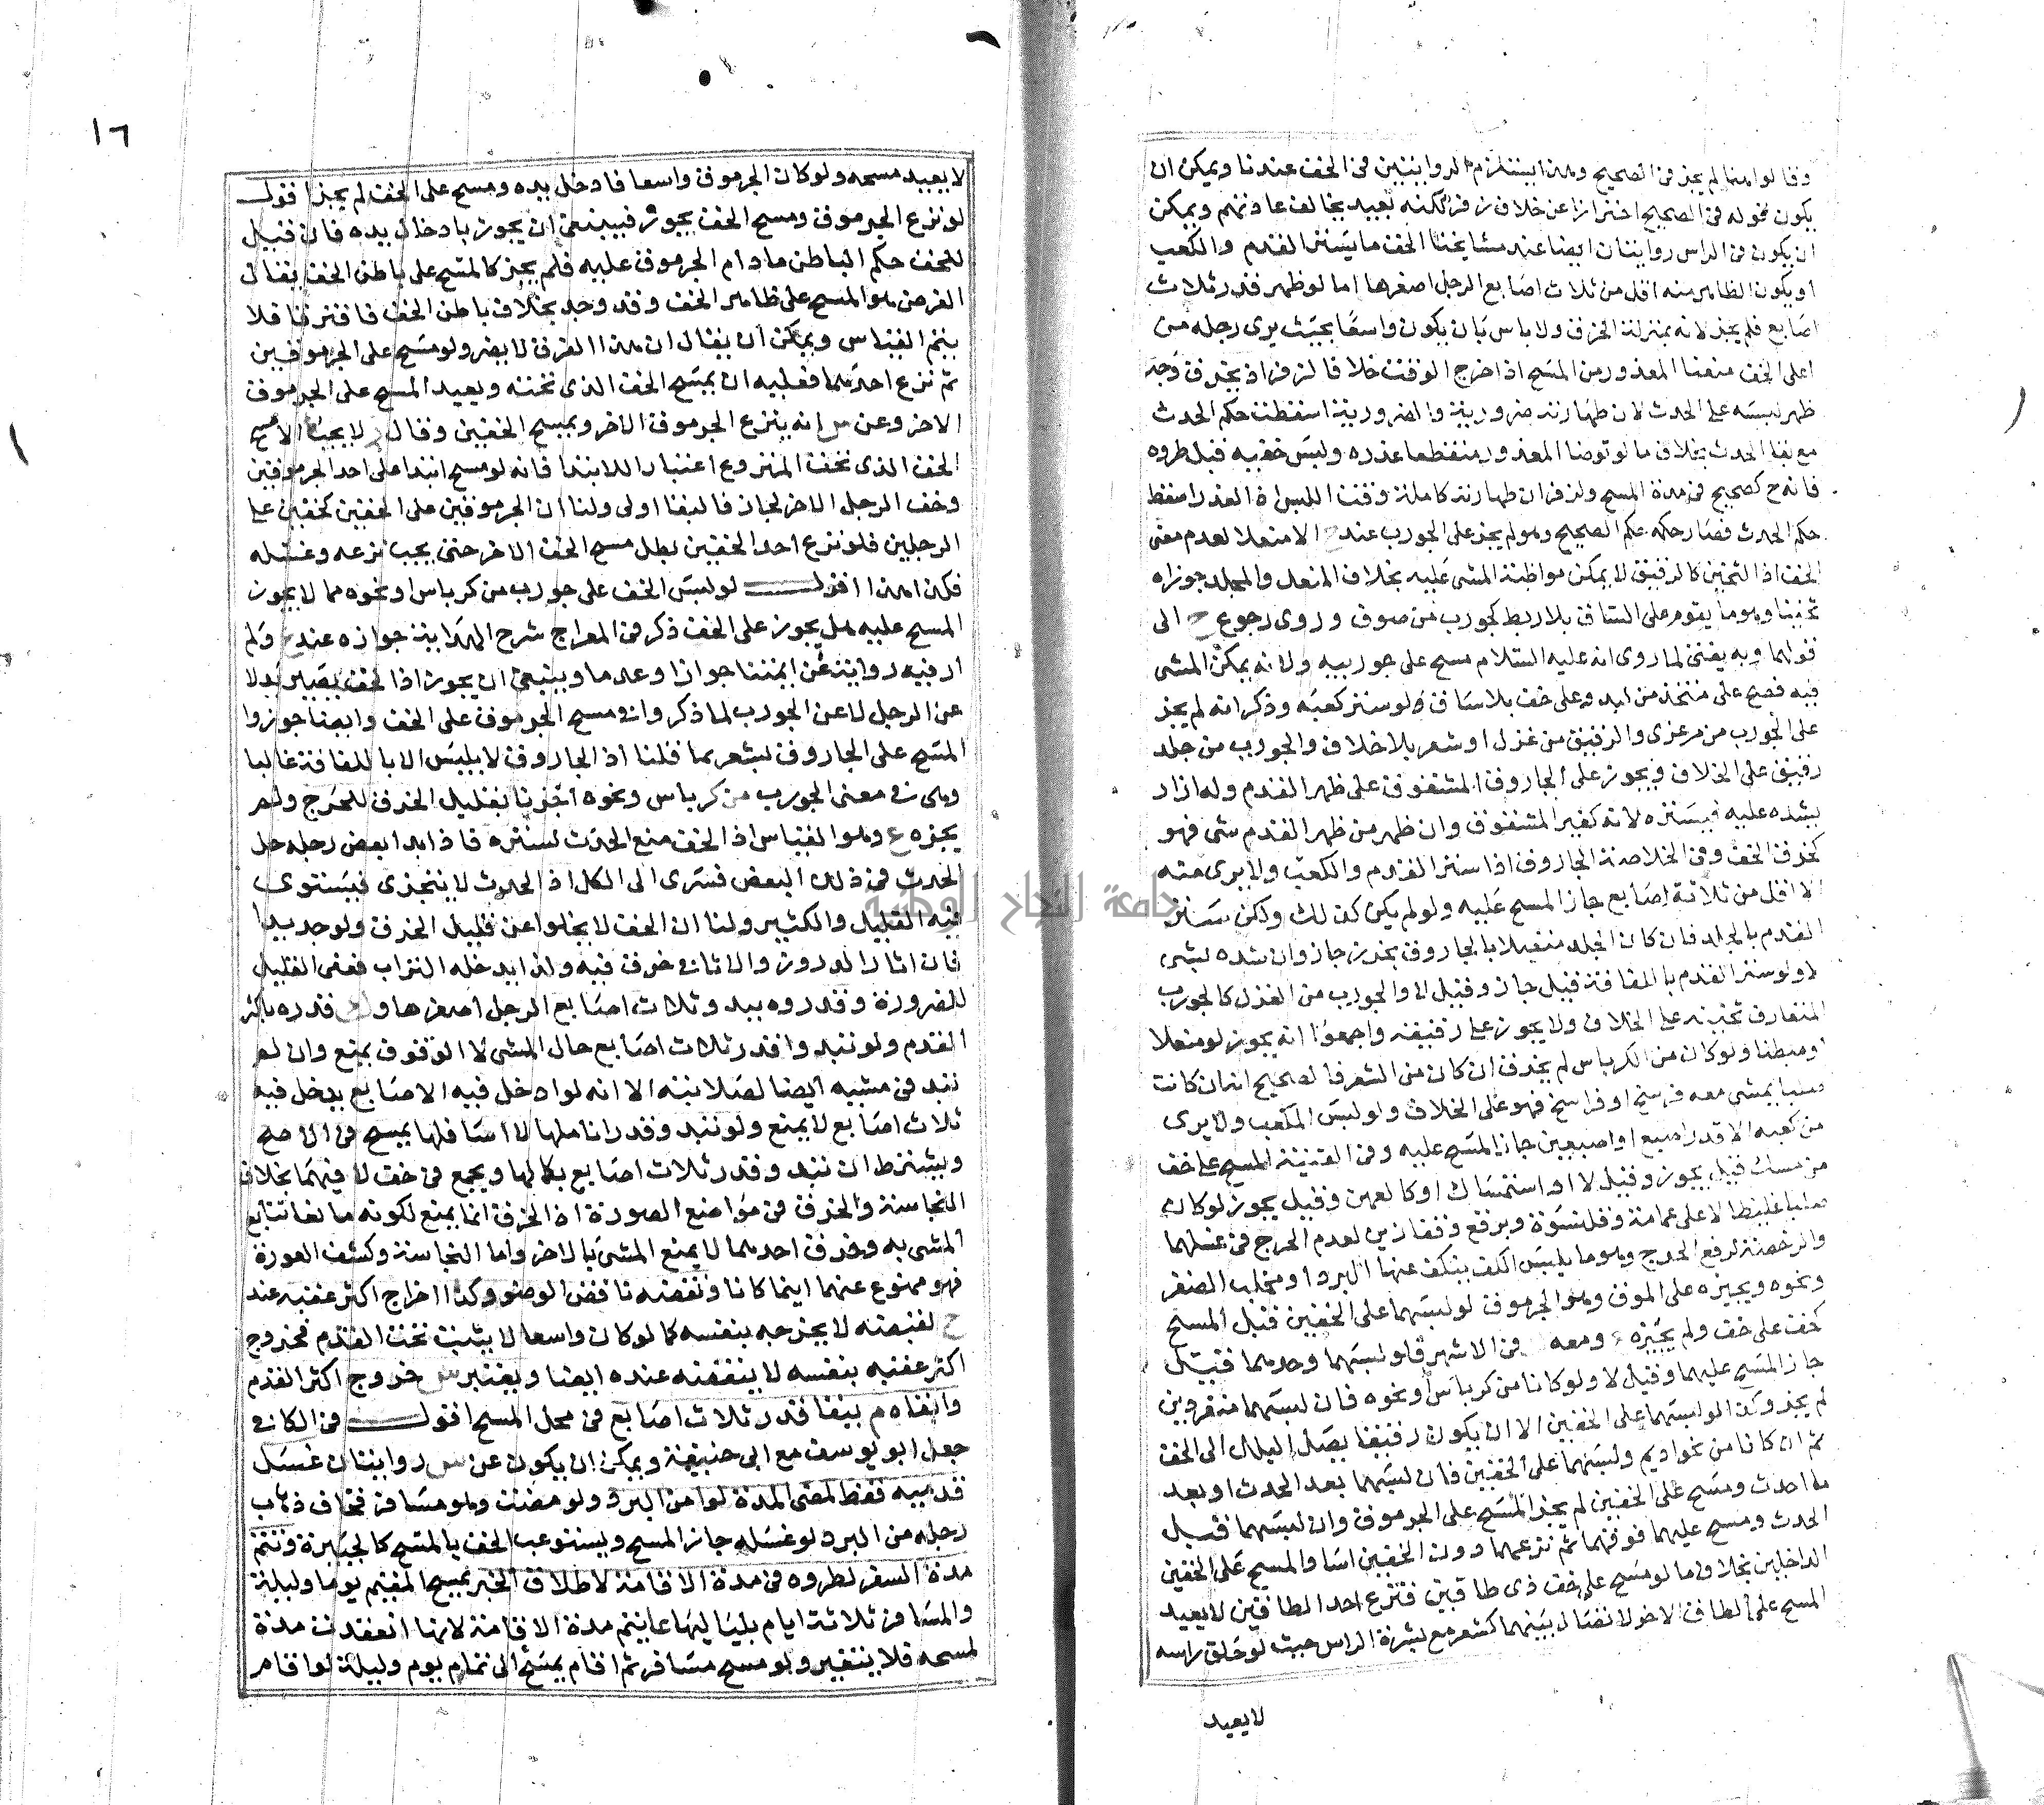 وقالوا منهما لم يجز في الصحيح وهذا يستلزم الروايتين في الخف عندنا ويمكن ان
يكون قوله في الصحيح احترازا عن خلاف زفر لكنه بعيد يخالف عادتهم ويمكن
ان يكون في الراس روايتان ايضا عند مشايخنا الخف ما يستر القدم والكعب
او يكون الظاهر منه اقل من ثلاث اصابع الرجل اصغرها اما لو ظهر قدر ثلاث
اصابع فلم يجز لانه بمنزلة الخرق ولا باس بان يكون واسعا بحيث يرى رجله من
اعلى الخف منعنا المعذور من المسح اذا خرج الوقت خلافا لزفر اذ بخروق وجد
ظهر لبسه على الحدث لان طهارته ضرورية والضرورية اسقطت حكم الحدث
مع بقا الحدث بخلاف ما لو توضا المعذور منقطعا عذره ولبس خفيه قبل طروه
فانه ح كصحيح في مدة المسح ولزفر ان طهارته كاملة وقت اللبس اذ العذر اسقط
حكم الحدث فصار حكمه حكم الصحيح وهو لم يجز على الجورب عند ح الا منعلا لعدم معنى
الخف اذ الثخين كالرقيق لا يمكن مواظبة المشي عليه بخلاف المنعل والمجلد جوزاه
ثخينا وهو ما يقوم على الساق بلا ربط كجورب من صوف وروى رجوع ح الى
قولهما وبه يفتى لما روى انه عليه السلام مسح على جوربيه ولانه يمكن المشي
فيه فصح على متخذ من لبد وعلى خف بلا ساق ولو ستر كعبه وذكر انه لم يجز
على الجورب من مرعزى والرقيق من غزل او شعر بلا خلاف والجورب من جلد
رقيق على الخلاف ويجوز على الجاروق المشقوق على ظهر القدم وله ازار
يشده عليه فيستره لانه كغير المشقوق وان ظهر من ظهر القدم شي فهو
كخرق الخف وفي الخلاصة الجاروق اذا ستر القدم والكعب ولا يرى منه
الا اقل من ثلاثة اصابع جاز المسح عليه ولو لم يكن كذلك ولكن ستر
القدم بالجلد فان كان الجلد متصلا بالجاروق بخرز جاز وان شده بشي
لا ولو ستر القدم باللفافة قيل جاز وقيل لا والجورب من الغزل كالجورب
المتعارف ثخينه على الخلاف ولا يجوز على رقيقه واجمعوا انه يجوز لو منعلا
او مبطنا ولو كان من الكرباس لم يجز وان كان من الشعر فالصحيح انه ان كانت
صلبا يمشي معه فرسخ او فراسخ فهو على الخلاف ولو لبس المكعب ولا يرى
من كعبه الا قدر اصبع او اصبعين جاز المسح عليه وفي القنية المسح على خف
من مسك قيل يجوز وقيل لا او استمساك او كالعهن وقيل يجوز لو كان
صلبا غليظا لا على عمامة وقلنسوة وبرقع وقفازين لعدم الحرج في غسلهما
والرخصة لرفع الحرج وهو ما يلبس الكف يتكف عنها البرد او مخلب الصقر
ونحوه ويجيزه على الموق وهو الجرموق لو لبسهما على الخفين قبل المسح
كخف على خف ولم يجيزه ومعه في الاشهر فلو لبسهما وحدهما قيل
جاز المسح عليهما وقيل لا ولو كانا من كرباس او نحوه فان لبسهما منفردين
لم يجز وكذا لو لبسهما على الخفين الا ان يكون رقيقا يصل البلل الى الخف
ثم ان كانا من نحو اديم ولبسهما على الخفين فان لبسهما بعد الحدث او بعد
ما احدث ومسح على الخفين لم يجز المسح على الجرموق وان لبسهما قبل
الحدث ومسح عليهما فوقهما ثم نزعهما دون الخفين اعاد المسح على الخفين
الداخلين بخلاف ما لو مسح على خف ذي طاقين فنزع احد الطاقين لا يعيد
المسح على الطاق الاخر لاتصال بينهما كشعر مع بشرة الراس حيث لو حلق راسه
لا يعيد
١٦
لا يعيد مسحه ولو كان الجرموق واسعا فادخل يده ومسح على الخف لم يجز اقول
لو نزع الجرموق ومسح الخف يجوز فينبغي ان يجوز بادخال يده فان قيل
للخف حكم الباطن مادام الجرموق عليه فلم يجز كالمسح على باطن الخف يقال
الفرض هو المسح على ظاهر الخف وقد وجد بخلاف باطن الخف فافترقا فلا
يتم القياس ويمكن ان يقال ان هذا الفرق لا يضر ولو مسح على الجرموقين
ثم نزع احدهما فعليه ان يمسح الخف الذي تحته ويعيد المسح على الجرموق
الاخر وعن س انه ينزع الجرموق الاخر ويمسح الخفين وقال ز لا يجب الا مسح
الخف الذي تحت المنزوع اعتبارا للابتدا فانه لو مسح ابتدا على احد الجرموقين
وخف الرجل الاخر لجاز فالبقا اولى ولنا ان الجرموقين على الخفين كخفين على
الرجلين فلو نزع احد الخفين بطل مسح الخف الاخر حتى يجب نزعه وغسله
فكذا هذا اقول لو لبس الخف على جورب من كرباس او نحوه مما لا يجوز
المسح عليه هل يجوز على الخف ذكر في المعراج شرح الهداية جوازه عند ح ولم
ار فيه رواية عن ايمتنا جوازا وعدما وينبغي ان يجوز اذا الخف يصير بدلا
عن الرجل لا عن الجورب لما ذكروا في مسح الجرموق على الخف وايضا جوزوا
المسح على الجاروق يشعر بما قلنا اذ الجاروق لا يلبس الا باللفافة غالبا
وهي في معنى الجورب من كرباس ونحوه اجزنا بقليل الخرق للحرج ولم
يجزه ع وهو القياس اذ الخف منع الحدث لستره فاذا بدا بعض رجله حل
الحدث في ذلك البعض فسرى الى الكل اذ الحدث لا يتجزى فيستوى
فيه القليل والكثير ولنا ان الخف لا يخلوا عن قليل الخرق ولو جديدا
فان اثار الدروز والاشافي خرق فيه ولذا يدخله التراب فعفى القليل
للضرورة وقدروه ببدو ثلاث اصابع الرجل اصغرها و قدره باكثر
القدم ولو تبدوا قدر ثلاث اصابع حال المشي لا الوقوف يمنع وان لم
تبد في مشيه ايضا لصلابته الا انه لو ادخل فيه الاصابع يدخل فيه
ثلاث اصابع لا يمنع ولو تبد وقدر اناملها لا اسافلها يمسح في الاصح
ويشترط ان تبد وقدر ثلاث اصابع بكمالها ويجمع في خف لا فيهما بخلاف
النجاسة والخرق في مواضع الصورة اذ الخرق انما يمنع لكونه مانعا تتابع
المشي به وخرق احدهما لا يمنع المشي بالاخر واما النجاسة وكشف العورة
فهو ممنوع عنهما اينما كانا ونقضه ناقض الوضو وكذا اخراج اكثر عقبه عند
ح لقبضته لا يخرجه بنفسه كما لو كان واسعا لا يثبت تحت القدم فخروج
اكثر عقبه بنفسه لا ينقضه عنده ايضا ويعتبر س خروج اكثر القدم
وابقاه م ببقا قدر ثلاث اصابع في محل المسح اقول في الكافي
جعل ابو يوسف مع ابي حنيفة ويمكن ان يكون عن س روايتان غسل
قدميه فقط لمضي المدة لو امن البرد ولو مضت وهو مسافر فخاف ذهاب
رجله من البرد لو غسله جاز المسح ويستوعب الخف بالمسح كالجبيرة وتتم
مدة السفر لطروه في مدة الاقامة لاطلاق الخبر يمسح المقيم يوما وليلة
والمسافر ثلاثة ايام بلياليها عا يتم مدة الاقامة لانها انعقدت مدة
لمسحه فلا يتغير ولو مسح مسافر ثم اقام يمسح الى تمام يوم وليلة لو اقام
جامعة النجاح الوطنية